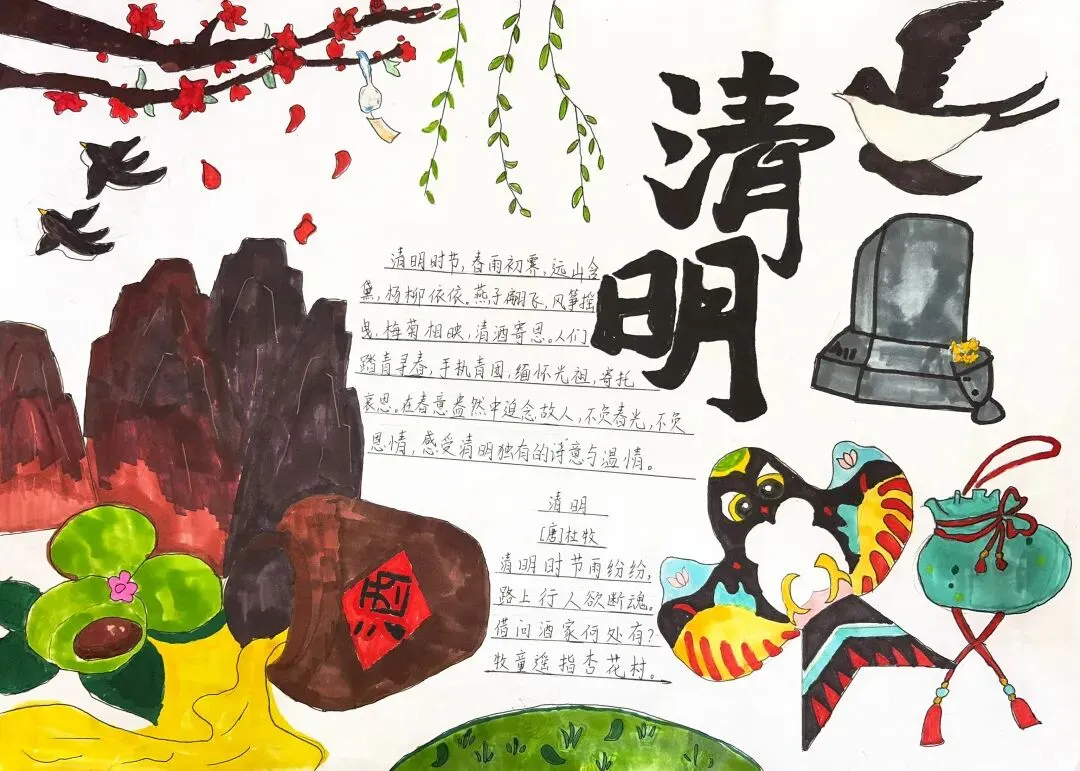 清明
清明时节,春雨初霁,远山含
黛,杨柳依依。燕子翩飞,风筝摇
曳,梅菊相映,清酒寄思。人们
踏青寻春,手执青团,缅怀先祖,寄托
哀思。在春意盎然中追念故人,不负春光,不负
恩情,感受清明独有的诗意与温情。
清明
[唐]杜牧
清明时节雨纷纷,
路上行人欲断魂。
借问酒家何处有?
牧童遥指杏花村。
酒